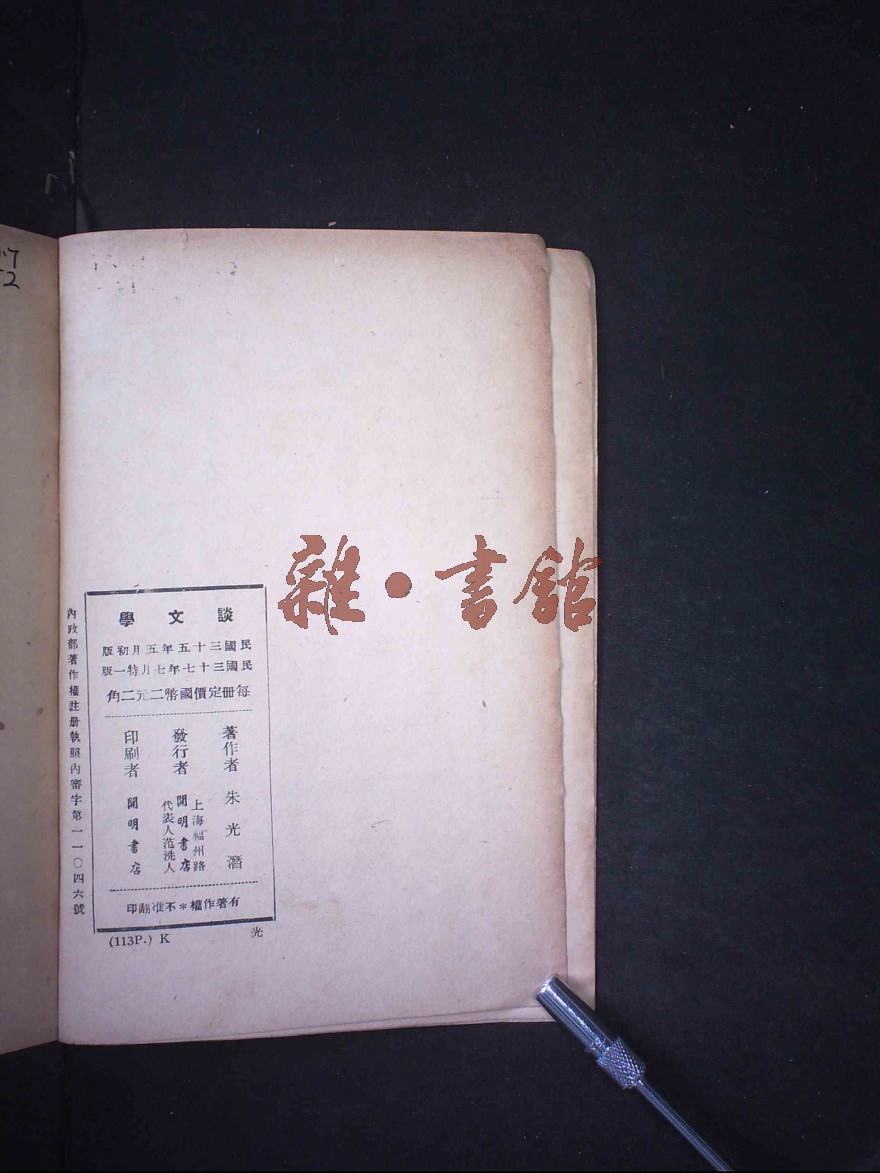 談文學
民國三十五年五月初版
民國三十七年七月特一版
每冊定價國幣二元二角
著作者 朱光潛
發行者 開明書店
上海福州路
代表人范洗人
印刷者 開明書店
有著作權*不准翻印
內政部著作權註册執照內審字第一一〇四六號
(113P.) K
光
雜·書館